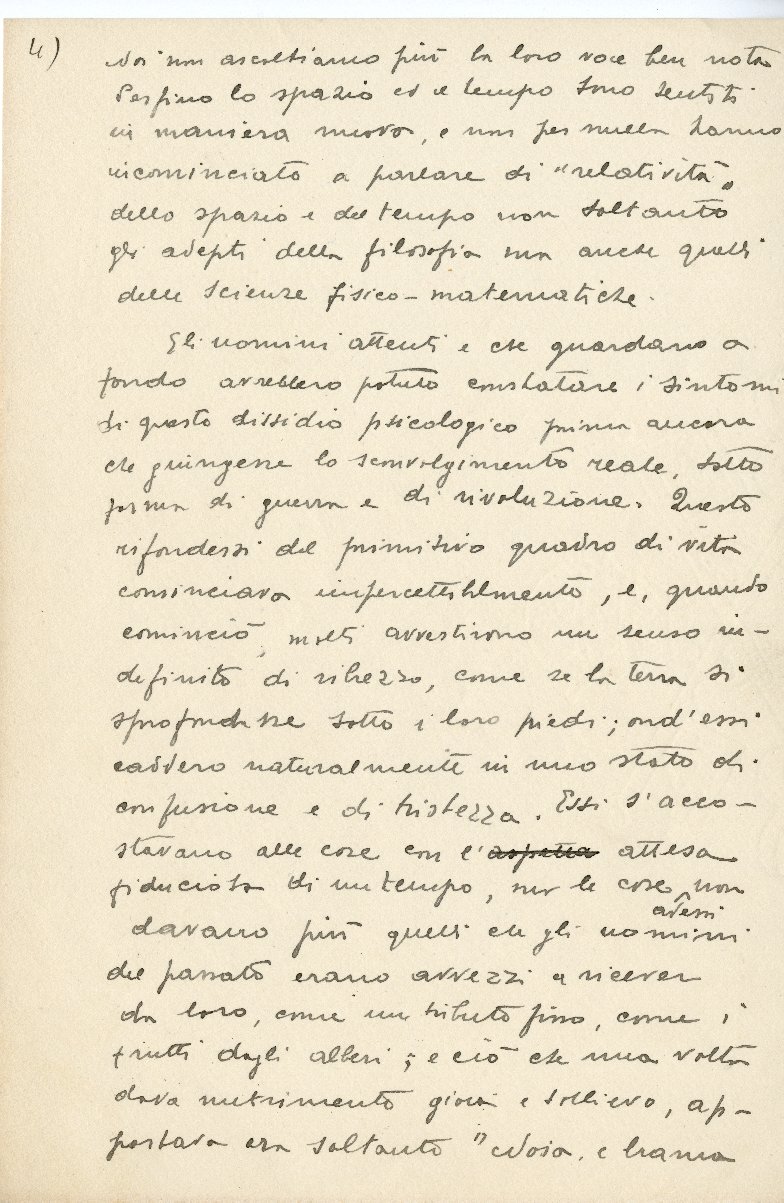 4)
Noi non ascoltiamo più la loro voce ben nota
Perfino lo spazio ed il tempo sono sentiti
in maniera nuova, e non per nulla hanno
incominciato a parlare di "relatività„
dello spazio e del tempo non soltanto
gli adepti della filosofia ma anche quelli
delle scienze fisico-matematiche.
Gli uomini attenti e che guardano a
fondo avrebbero potuto constatare i sintomi
di questo dissidio psicologico prima ancora
che giungesse lo sconvolgimento reale, sotto
forma di guerra e di rivoluzione. Questo
rifondersi del primitivo quadro di vita
cominciava impercettibilmente, e, quando
cominciò, molti avvertirono un senso in-
definito di ribrezzo, come se la terra si
sprofondasse sotto i loro piedi; ond'essi
caddero naturalmente in uno stato di
confusione e di tristezza. Essi s'acco-
stavano alle cose con l' attesa
fiduciosa di un tempo, ma le cose non
ad essi
davano più quello che gli uomini
del passato erano avvezzi a ricever
da loro, come un tributo fisso, come i
frutti dagli alberi; e ciò che una volta
dava nutrimento gioia e sollievo, ap-
portava ora soltanto "Noia. e brama